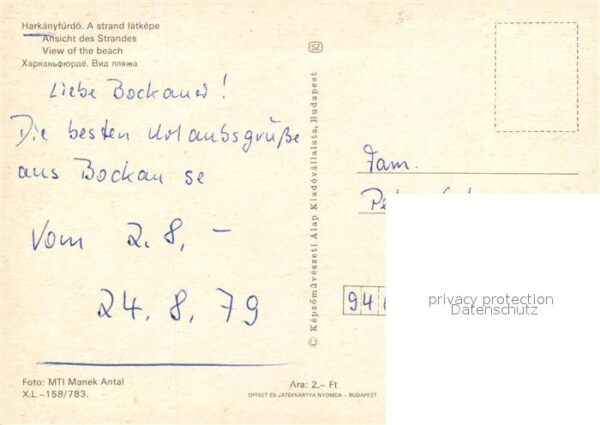 Harkányfürdő. A strand látképe
Ansicht des Strandes
View of the beach
Харканьфюрдё. Вид пляжа
Liebe Bockauer!
Die besten Urlaubsgrüße
aus Bockau se
Vom 2.8. –
24.8.79
Foto: MTI Manek Antal
X.L.–158/783.
© Képzőművészeti Alap Kiadóvállalata, Budapest
SZ
Ára: 2,– Ft
OFFSET ÉS JÁTÉKKÁRTYA NYOMDA – BUDAPEST
Fam.
94
privacy protection
Datenschutz